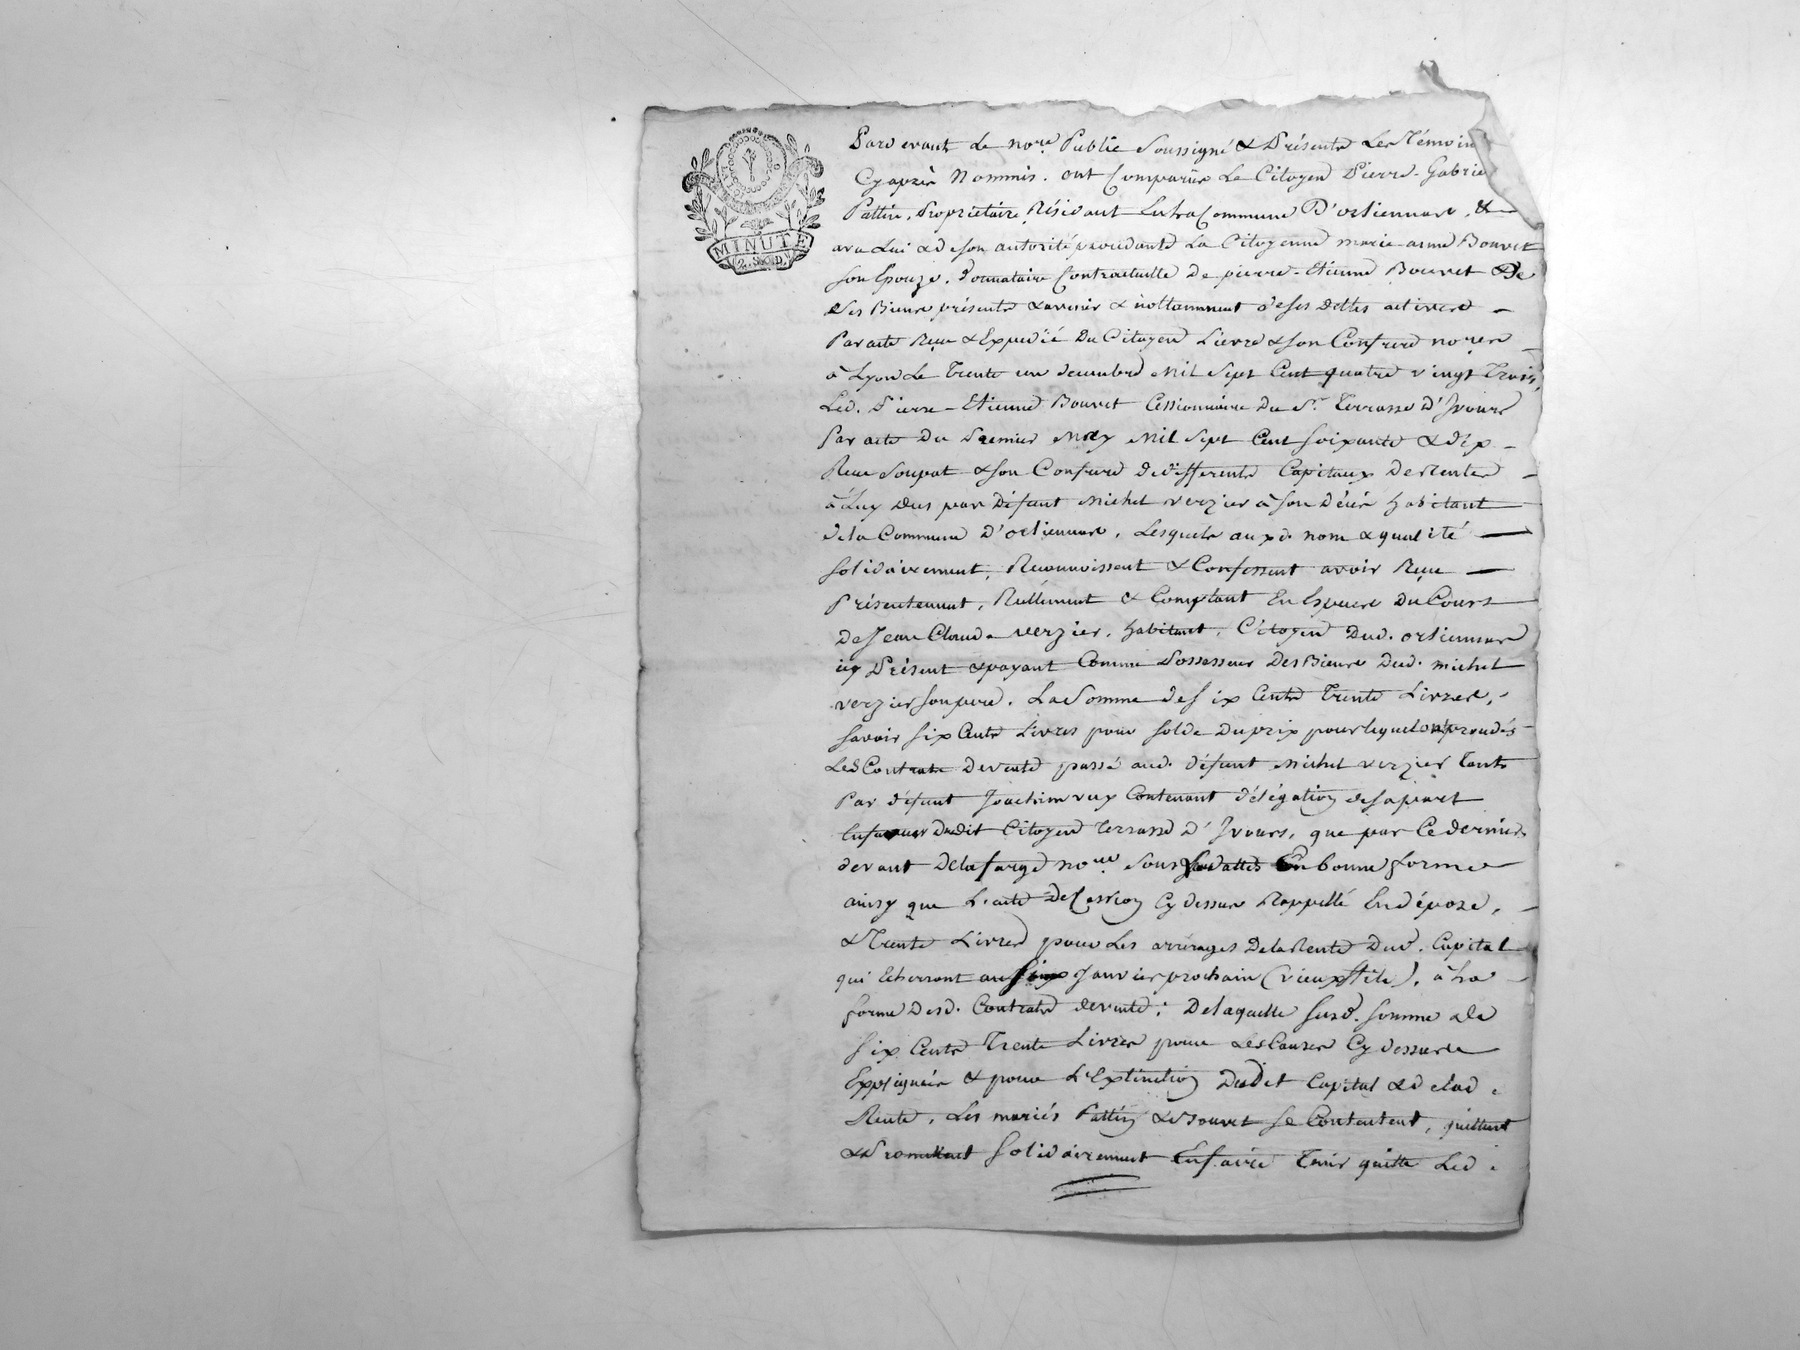 MINUTE
2. S. 6. D.
Pardevant le no.re Public Soussigné & Présents Les Témoins
Cyaprès Nommés. ont Comparûs Le Citoyen Pierre-Gabriel
Pattin, Propriétaire Résidant En la Commune D'orliennas, &
avec Lui & de son autorité procédante La Citoyenne marie anne Bouvet
son Epouze, Donnataire Contractuelle De pierre-Etienne Bouvet De
Ses Biens présents & avenir & nottamment de ses Dettes actives
Par acte Reçu & Expedié Du Citoyen Lievre & son Confrere no.res
à Lyon Le Trente un decembre Mil Sept Cent quatre vingt Trois,
Led. Pierre-Etienne Bouvet Cessionnaire Du Sr. Terrasse D'Ivours
Par acte Du Premier May Mil Sept Cent soixante & dix
Reçu Soupat & son Confrere De differents Capitaux De Rentes
à Luy Dus par Défunt Michel verzier à son Décès habitant
de la Commune D'orliennas, Lesquels aux d. nom & qualité
solidairement, Reconnoissent & Confessent avoir Reçu
Présentement, Réellement & Comptant En Especes Du Cours
De Jean Claude verzier, habitant, Citoyen Dud. orliennas
icy Présent & payant Comme Possesseur Des Biens Dud. michel
verzier son pere. La Somme de six Cents Trente Livres,
savoir six Cents Livres pour solde Du prix pour lequel ont procedés
Les Contrats De vente passé aud. défunt Michel verzier Tant
Par défunt Joachim rey Contenant délégation de sa part
En faveur Dudit Citoyen Terrasse D'Ivours, que par Ce dernier
devant Delafarge no.re sous Ses dattes En bonne forme
ainsy que L'acte De Cession Cy dessus Rappellé En dépose,
& Trente Livres pour Les arrérages De la Rente Dud. Capital
qui Echerront au six Janvier prochain (vieux stile), à La
forme Desd. Contrats de vente; De laquelle susd. somme de
six Cents Trente Livres pour Les Causes Cy dessus
Expliquées & pour L'Extinction Dudit Capital & de lad.
Rente, Les mariés Pattin & Bouvet se Contentent, quittent
& Promettent solidairement En faire Tenir quitte Led.